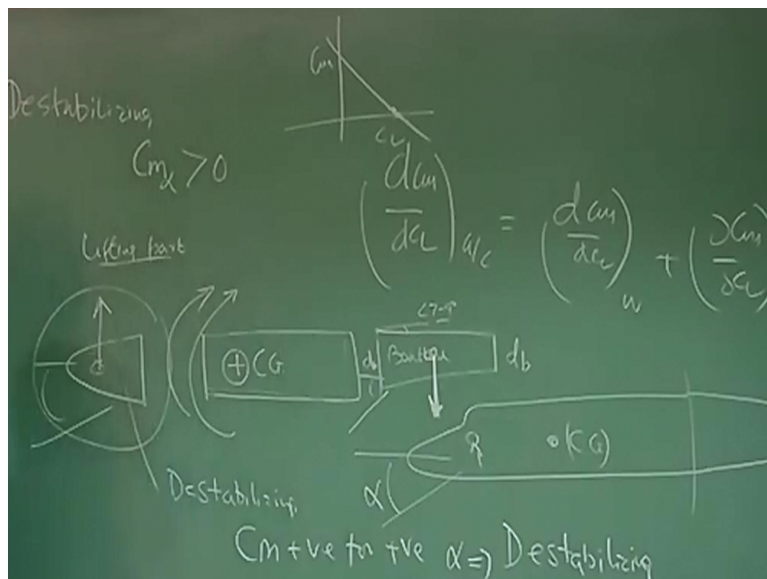 Destabilizing
Cmα > 0
Cm
CL
(dCm/dCL)a/c = (dCm/dCL)w + (∂Cm/∂CL)
Lifting part
CG
db
db
Destabilizing
(CG)
α
Cm +ve for +ve α ⇒ Destabilizing